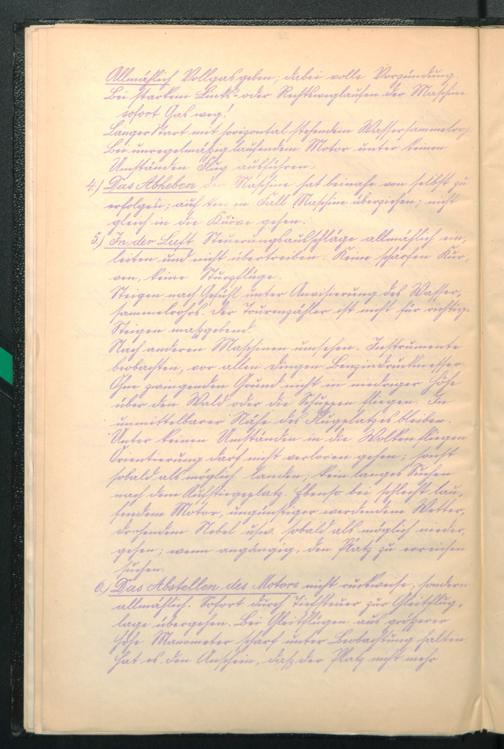 Allmählich Vollgas geben; dabei volle Vorzündung.
Bei starkem Links- oder Rechtsweglaufen der Maschine
sofort Gas weg!
Langer Start mit horizontal stehendem Wassersammelrohr
Bei unregelmäßig laufendem Motor unter keinen
Umständen Flug ausführen.
4.) Das Abheben der Maschine hat beinahe von selbst zu
erfolgen; auf keinen Fall Maschine überziehen; nicht
gleich in die Kurve gehen.
5.) In der Luft Steuerungsausschläge allmählich ein,
leiten und nicht übertreiben. Keine scharfen Kur,
ven, keine Sturzflüge.
Steigen nach Gefühl unter Anvisierung des Wasser,
sammelrohrs. Der Tourenzähler ist nicht für richtiges
Steigen maßgebend.
Nach anderen Maschinen umsehen. Instrumente
beobachten, vor allen Dingen Benzindruckmesser
Ohne zwingenden Grund nicht in niedriger Höhe
über den Wald oder die Schuppen fliegen. In
unmittelbarer Nähe des Flugplatzes bleiben.
Unter keinen Umständen in die Wolken fliegen
Orientierung darf nicht verloren gehen; sonst
sobald als möglich landen; kein langes Suchen
nach dem Flugplatz. Ebenso bei schlecht lau,
fendem Motor, ungünstiger werdendem Wetter,
drohendem Nebel usw. sobald als möglich nieder,
gehen; wenn angängig, den Platz zu erreichen
suchen.
6.) Das Abstellen des Motors nicht ruckweise, sondern
allmählich. Sofort durch Tiefsteuer zur Gleitflug,
lage übergehen. Bei Gleitflügen aus größerer
Höhe Manometer scharf unter Beobachtung halten
Hat es den Anschein, daß der Platz nicht mehr